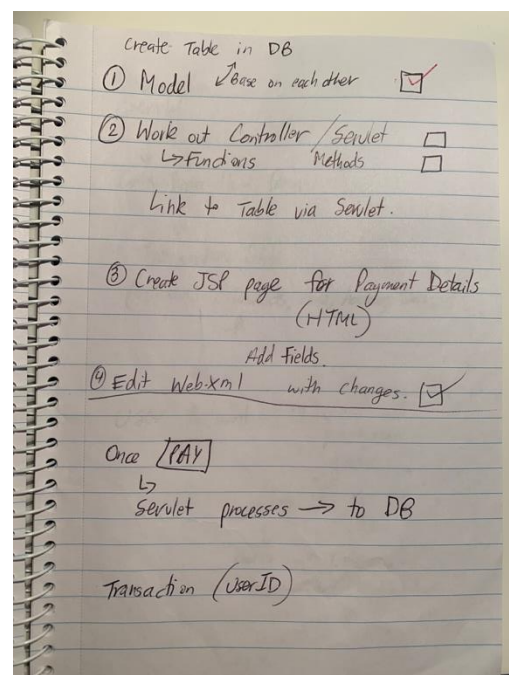 Create Table in DB
① Model Base on each other
② Work out Controller / Servlet
Functions Methods
Link to Table via Servlet.
③ Create JSP page for Payment Details
(HTML)
Add Fields.
④ Edit Web.xml with changes.
Once PAY
Servlet processes → to DB
Transaction (UserID)